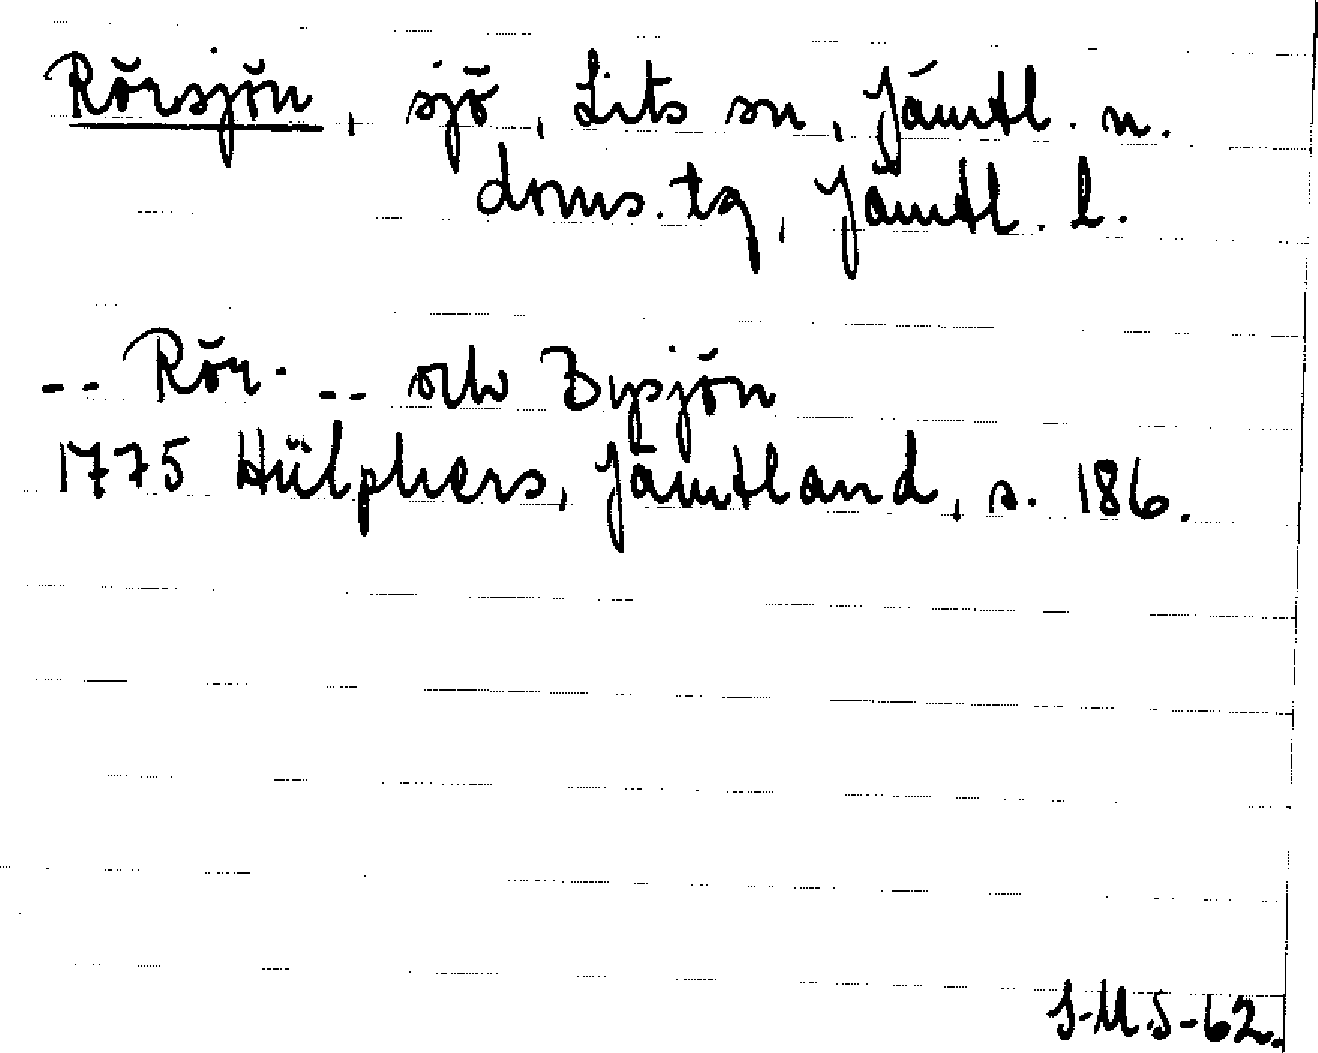 Rörsjön, sjö, Lits sn, Jämtl. n.
doms.tg, Jämtl. l.
-- Rör- -- och Bysjön
1775 Hülphers, Jämtland, s. 186.